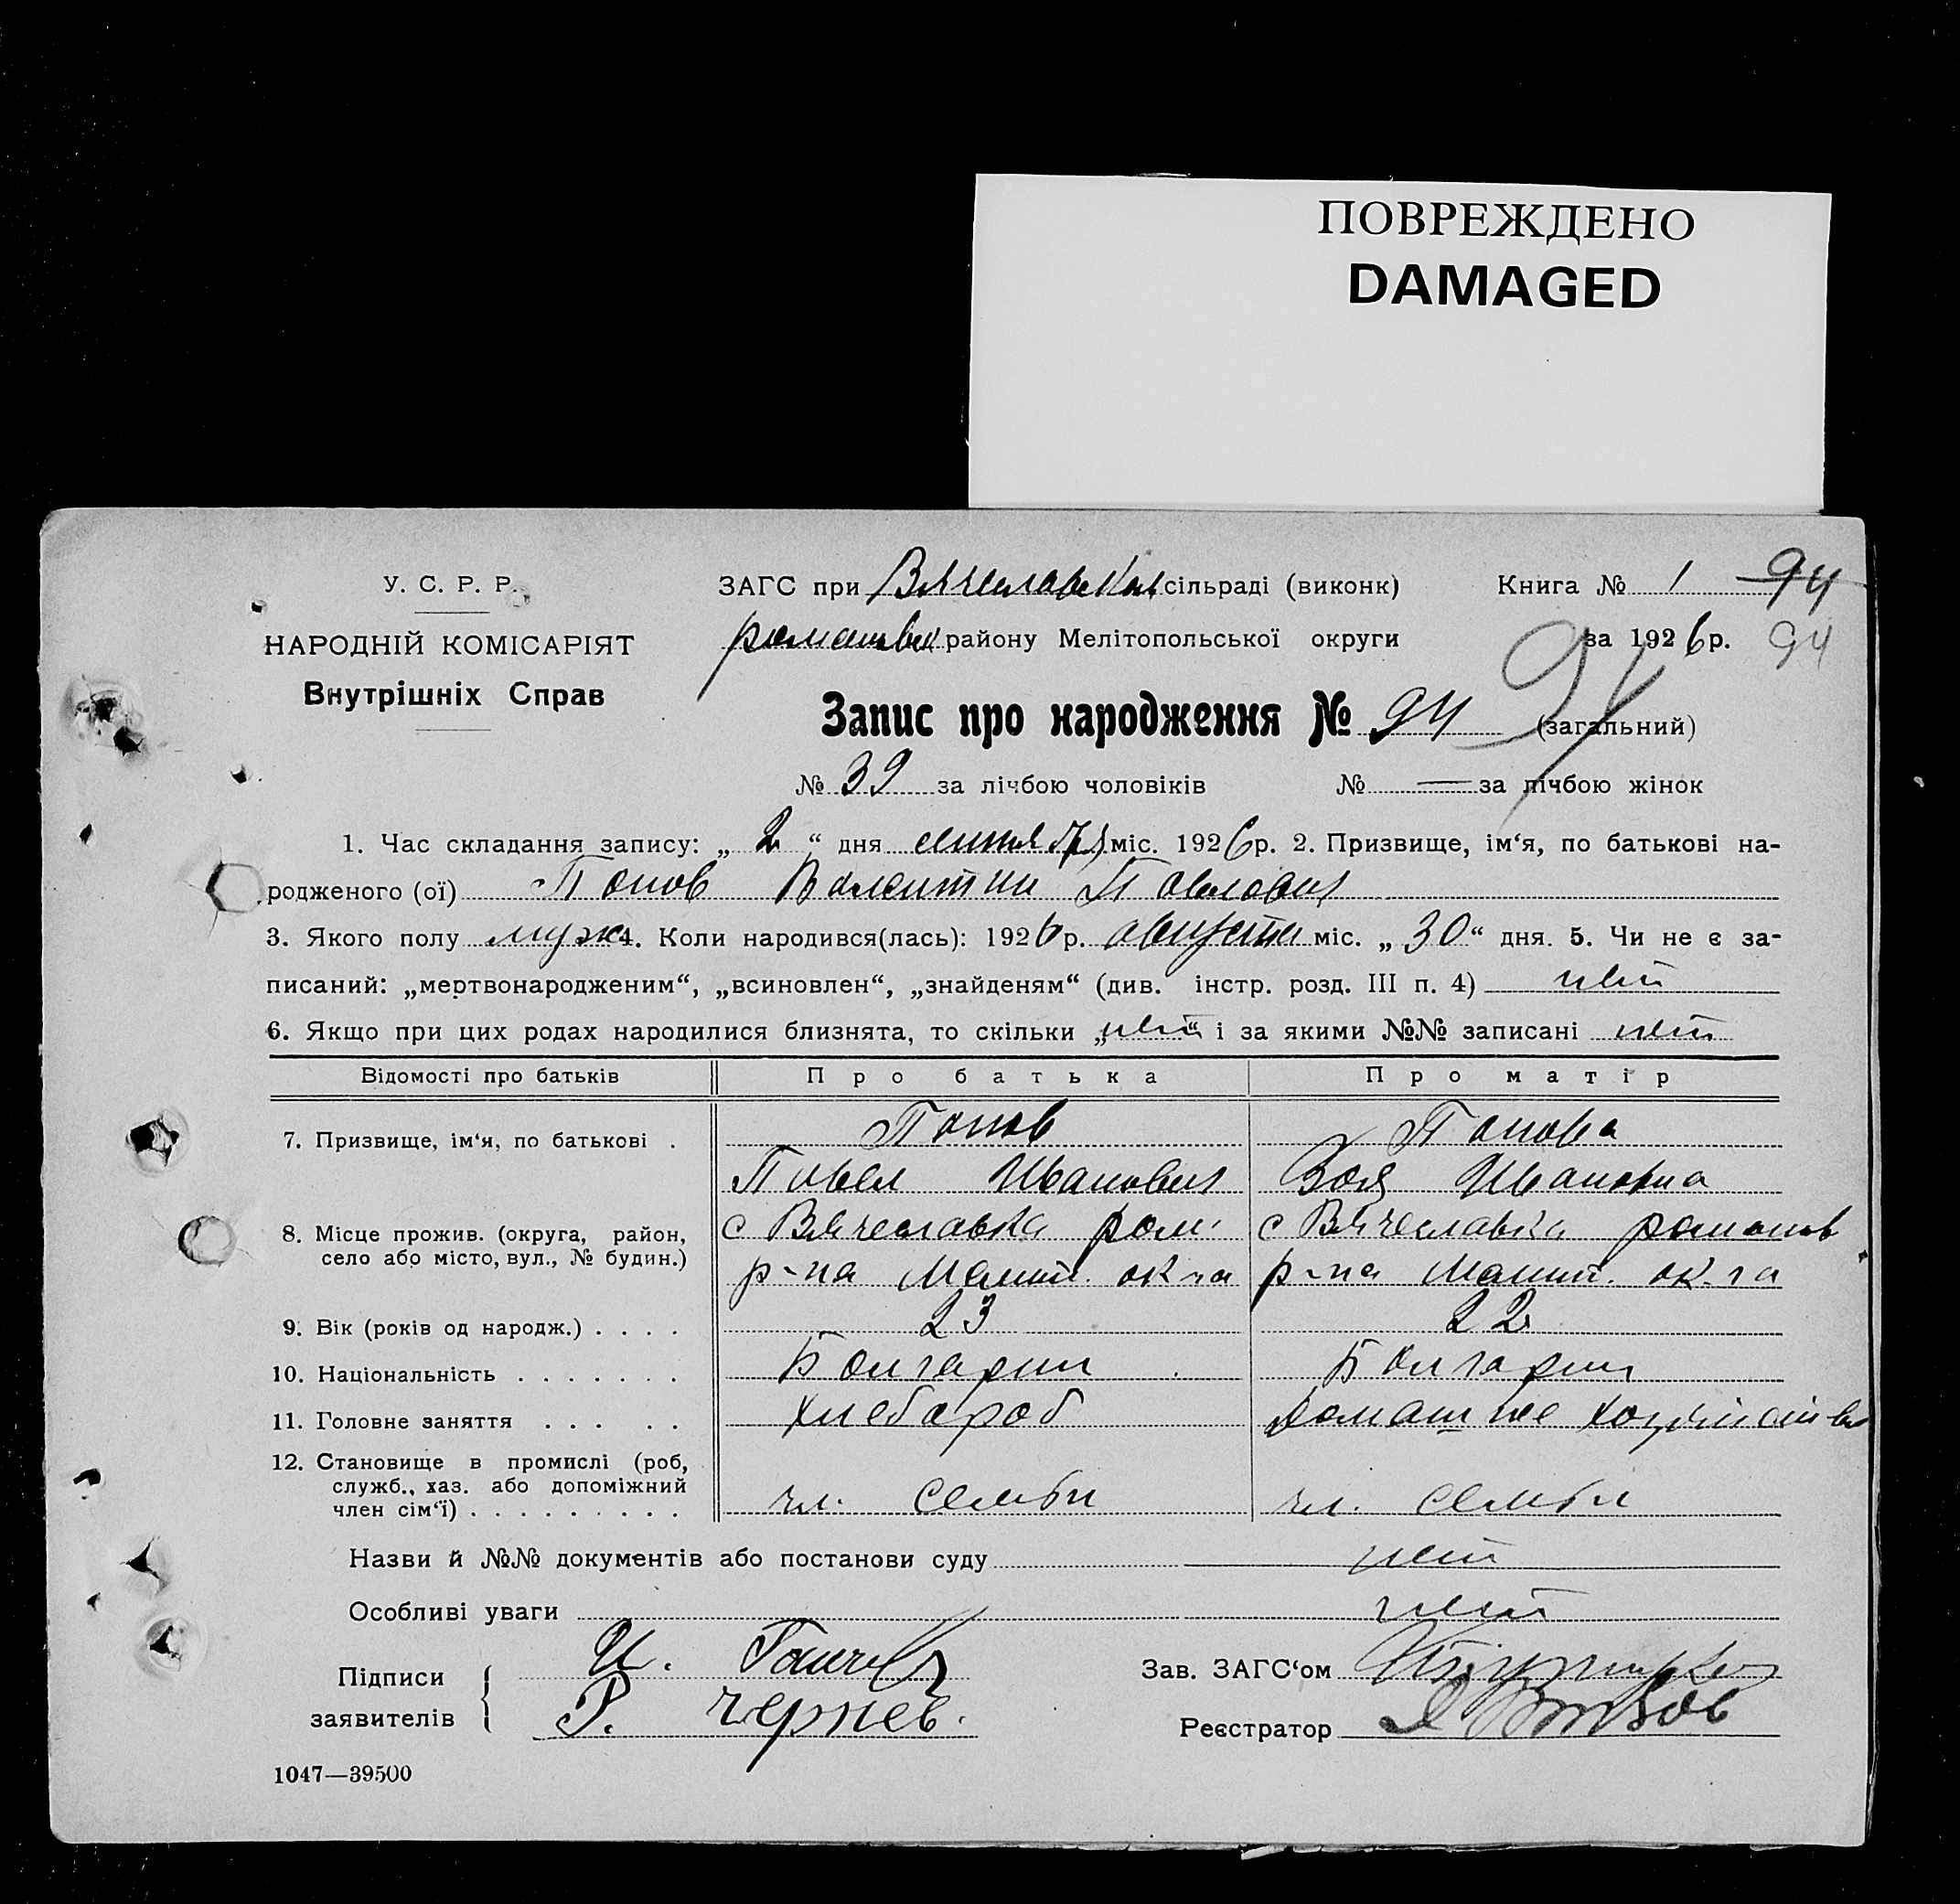 ПОВРЕЖДЕНО
DAMAGED
У. С. Р. Р.
НАРОДНІЙ КОМІСАРІЯТ
Внутрішніх Справ
ЗАГС при Вячеславской сільраді (виконк)
Книга № 1 94
романовск району Мелітопольської округи
за 1926 р. 94
94
Запис про народження № 94 (загальний)
№ 39 за лічбою чоловіків № — за лічбою жінок
1. Час складання запису: „ 2 “ дня сентября міс. 1926 р. 2. Призвище, ім‘я, по батькові на-
родженого (ої) Попов Валентин Павлович
3. Якого полу муж 4. Коли народився(лась): 1926 р. августа міс. „ 30 “ дня. 5. Чи не є за-
писаний: „мертвонародженим“, „всиновлен“, „знайденям“ (див. інстр. розд. III п. 4) нет
6. Якщо при цих родах народилися близнята, то скільки „нет“ і за якими №№ записані нет
Відомості про батьків Про батька Про матір
7. Призвище, ім‘я, по батькові . Попов Попова
Павел Иванович Зоя Ивановна
8. Місце прожив. (округа, район, с Вячеславка ром. с Вячеславка романов
село або місто, вул., № будин.) р-на Мелит. ок-га р-на Мелит. ок-га
9. Вік (років од народж.) . . . . 23 22
10. Національність . . . . . . . Болгарин Болгарин
11. Головне заняття . . . . . Хлебороб Домашнее хозяйство
12. Становище в промислі (роб,
служб., хаз. або допоміжний
член сім‘ї) . . . . . . . . . чл. семьи чл. семьи
Назви й №№ документів або постанови суду нет
Особливі уваги нет
Підписи
заявителів
И.
Р. Чернев.
Зав. ЗАГС‘ом
Реєстратор
1047—39500